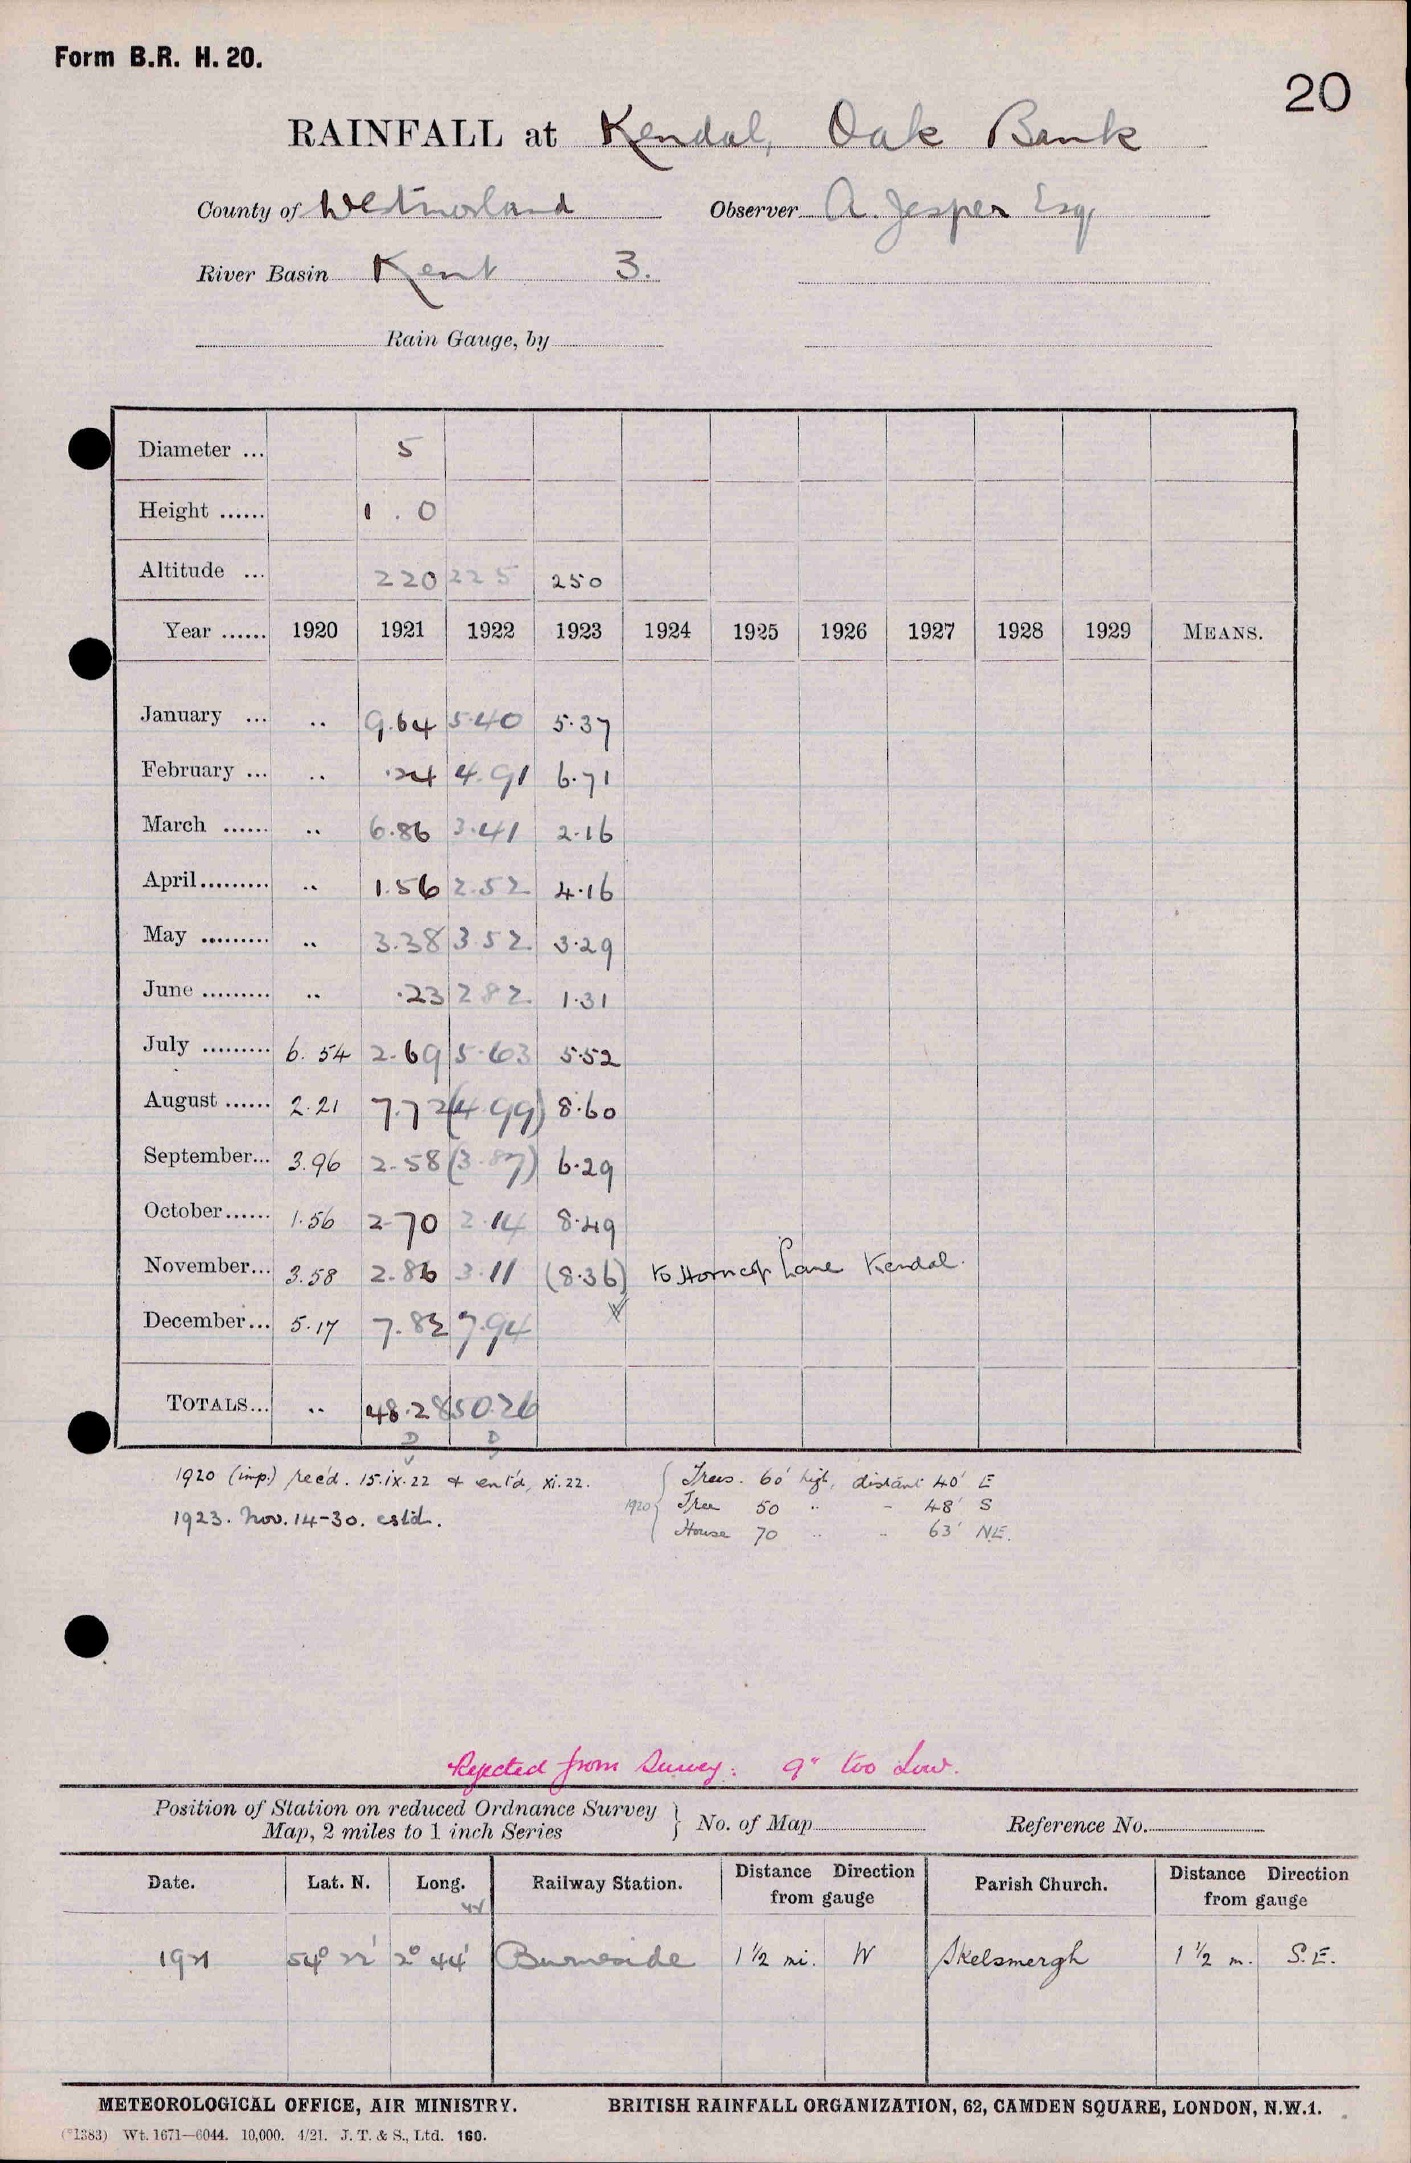 Form B.R. H. 20.
20
RAINFALL at Kendal, Oak Bank
County of Westmorland Observer A. Jesper Esq.
River Basin Kent 3.
Rain Gauge, by
Diameter ... 5
Height ...... 1 . 0
Altitude ... 220 225 250
Year ...... 1920 1921 1922 1923 1924 1925 1926 1927 1928 1929 MEANS.
January ... .. 9.64 5.40 5.37
February ... .. .24 4.91 6.71
March ...... .. 6.86 3.41 2.16
April......... .. 1.56 2.52 4.16
May ......... .. 3.38 3.52 3.29
June ......... .. .23 2.82 1.31
July ......... 6.54 2.69 5.63 5.52
August ...... 2.21 7.72 (4.99) 8.60
September... 3.96 2.58 (3.87) 6.29
October...... 1.56 2.70 2.14 8.49
November... 3.58 2.86 3.11 (8.36) to Horncop Lane Kendal.
December... 5.17 7.82 7.94
TOTALS... .. 48.28 50.26
D D
1920 (imp.) rec'd. 15.ix.22 & ent'd, xi.22.
1923. Nov. 14-30. est'd.
1920 { Trees. 60' high, distant 40' E
Tree 50 .. - 48' S
House 70 .. .. 63' NE.
Rejected from Survey: 9" too low.
Position of Station on reduced Ordnance Survey Map, 2 miles to 1 inch Series } No. of Map Reference No.
Date. Lat. N. Long. Railway Station. Distance Direction from gauge Parish Church. Distance Direction from gauge
W
1921 54° 22' 2° 44' Burneside 1 1/2 mi. W Skelsmergh 1 1/2 m. S.E.
METEOROLOGICAL OFFICE, AIR MINISTRY. BRITISH RAINFALL ORGANIZATION, 62, CAMDEN SQUARE, LONDON, N.W.1.
(*1383) Wt. 1671—6044. 10,000. 4/21. J. T. & S., Ltd. 160.